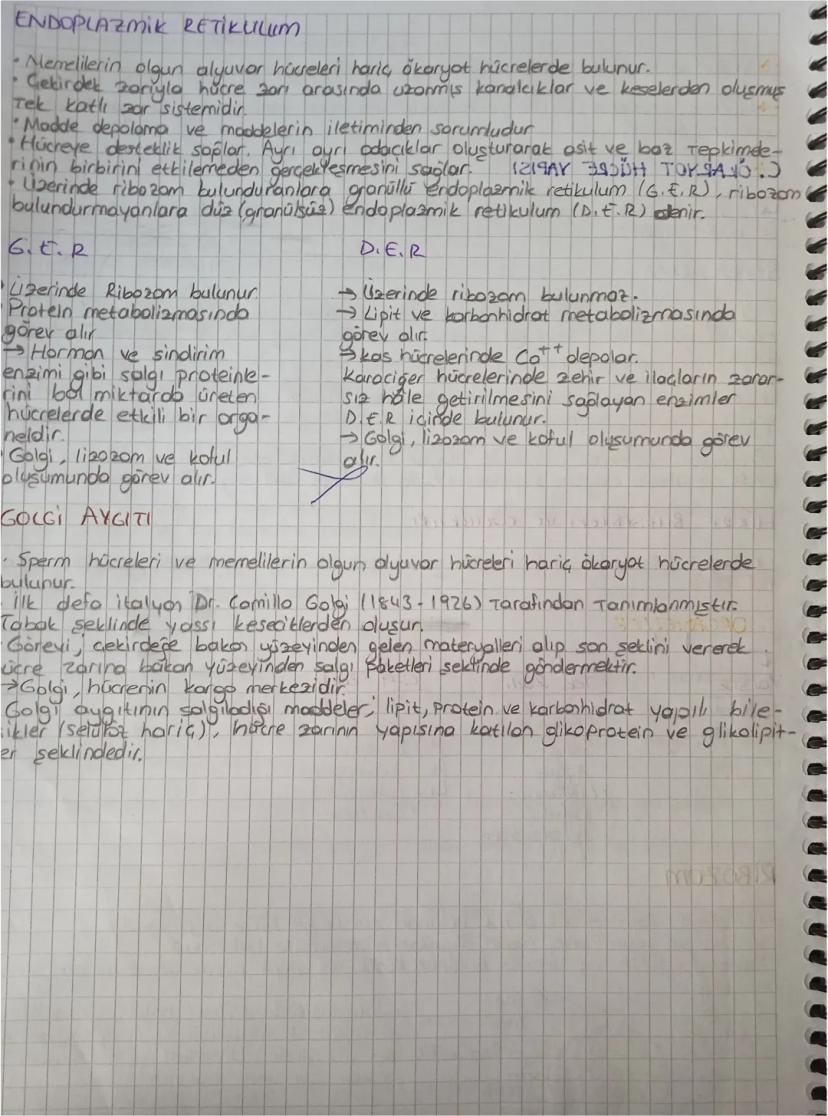 ENDOPLAZMİK RETİKULUM
• Memelilerin olgun alyuvar hücreleri hariç ökaryot hücrelerde bulunur.
• Çekirdek zarıyla hücre zarı arasında uzanmış kanalcıklar ve keselerden oluşmuş
tek katlı zar sistemidir.
• Madde depolama ve maddelerin iletiminden sorumludur
• Hücreye desteklik sağlar. Ayrı ayrı odacıklar oluşturarak asit ve baz tepkimele-
rinin birbirini etkilemeden gerçekleşmesini sağlar.
• Üzerinde ribozom bulunduranlara granüllü endoplazmik retikulum (G.E.R), ribozom
bulundurmayanlara düz (granülsüz) endoplazmik retikulum (D.E.R) denir.
G.E.R
Üzerinde Ribozom bulunur.
Protein metabolizmasında
görev alır
→ Hormon ve sindirim
enzimi gibi salgı proteinle-
rini bol miktarda üreten
hücrelerde etkili bir orga-
neldir.
Golgi, lizozom ve koful
oluşumunda görev alır.
D.E.R
→ Üzerinde ribozom bulunmaz.
→ Lipit ve karbonhidrat metabolizmasında
görev alır.
→ Kas hücrelerinde Ca++ depolar.
Karaciğer hücrelerinde zehir ve ilaçların zarar-
sız hale getirilmesini sağlayan enzimler
D.E.R içinde bulunur.
→ Golgi, lizozom ve koful oluşumunda görev
alır.
GOLGİ AYGITI
• Sperm hücreleri ve memelilerin olgun alyuvar hücreleri hariç ökaryot hücrelerde
bulunur.
İlk defa italyan Dr. Camillo Golgi (1843-1926) tarafından tanımlanmıştır.
Tabak şeklinde yassı keseciklerden oluşur.
Görevi, çekirdeğe bakan yüzeyinden gelen materyalleri alıp son şeklini vererek
ücre zarına bakan yüzeyinden salgı paketleri şeklinde göndermektir.
→ Golgi, hücrenin kargo merkezidir.
Golgi aygıtının salgıladığı maddeler; lipit, protein ve karbonhidrat yapılı bile-
ikler (selüloz hariç), hücre zarının yapısına katılan glikoprotein ve glikolipit-
er şeklindedir.